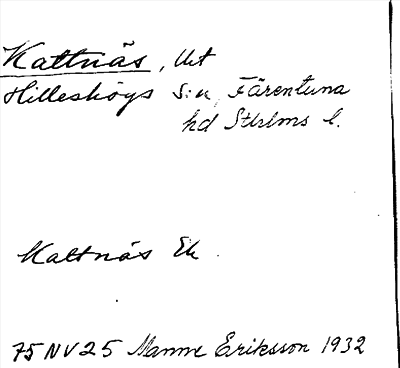 Kattnäs, Ut
Hilleshögs s:n, Färentuna
hd Sthlms l.
Kattnäs Ek
75 NV 25 Manne Eriksson 1932